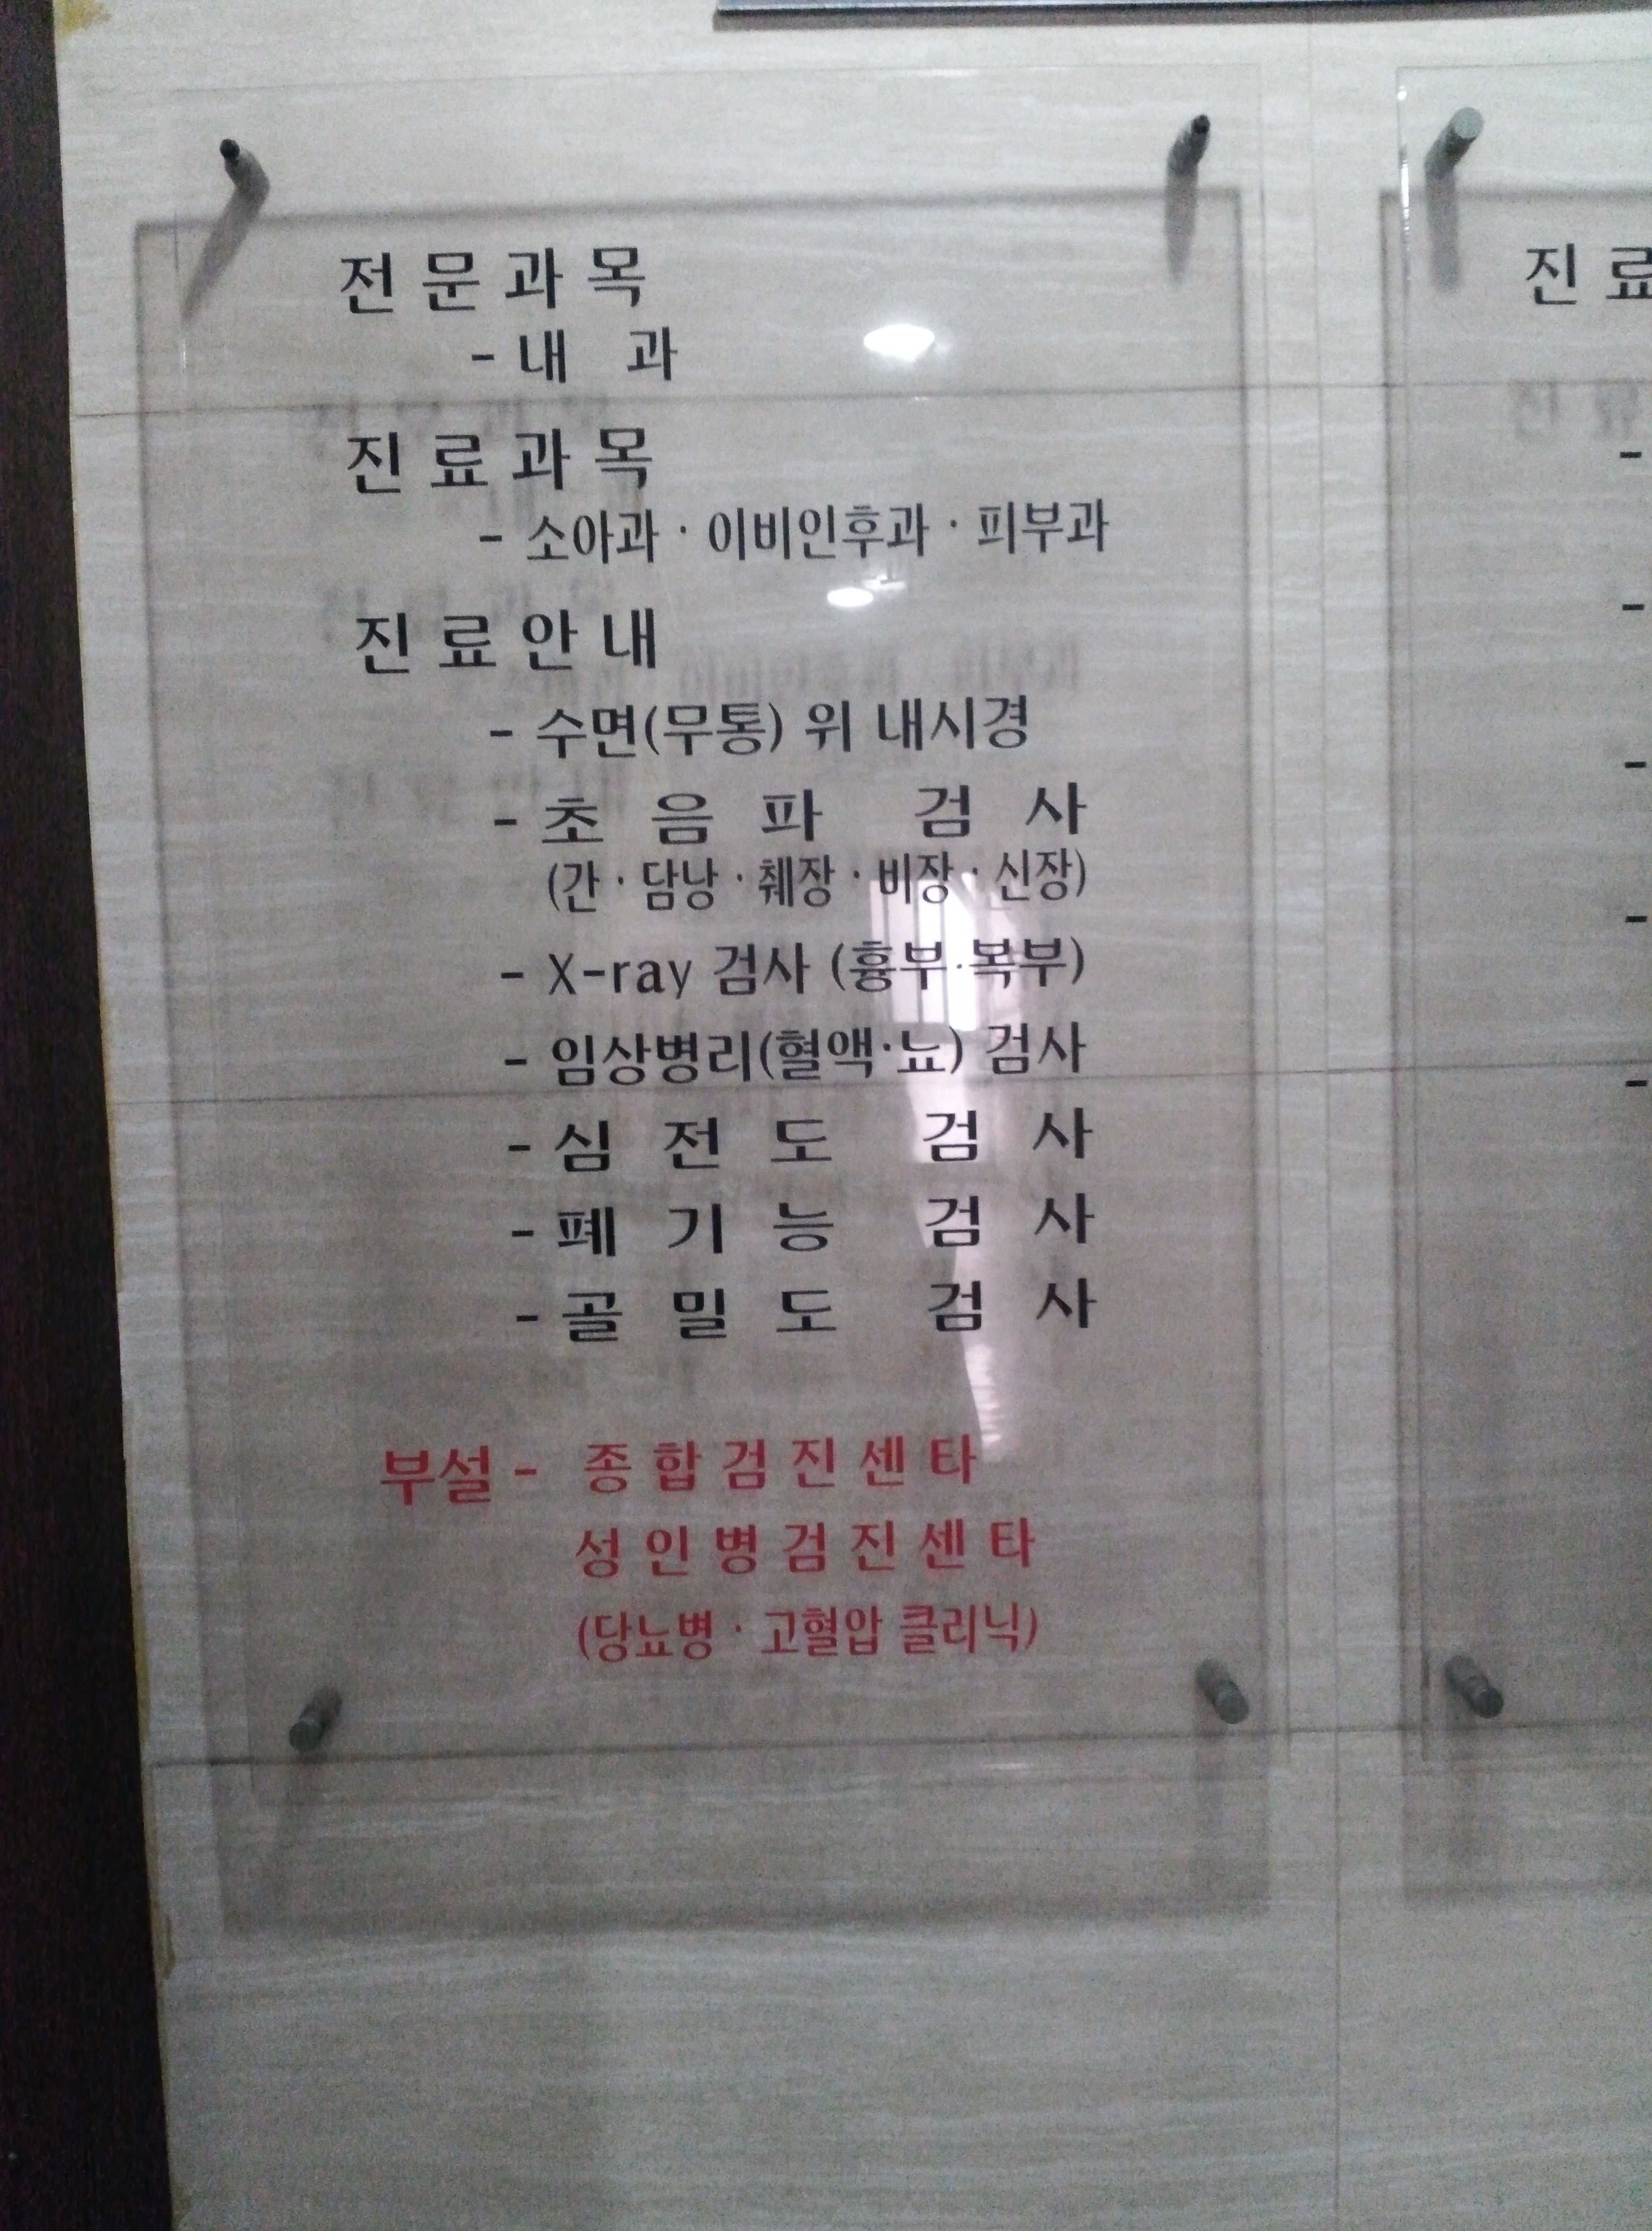 전문과목
- 내 과
진료과목
- 소아과 · 이비인후과 · 피부과
진료안내
- 수면(무통) 위 내시경
- 초 음 파 검 사
(간 · 담낭 · 췌장 · 비장 · 신장)
- X-ray 검사 (흉부·복부)
- 임상병리(혈액·뇨) 검사
- 심 전 도 검 사
- 폐 기 능 검 사
- 골 밀 도 검 사
부설 - 종합검진센타
성인병검진센타
(당뇨병 · 고혈압 클리닉)
진료
-
-
-
-
-